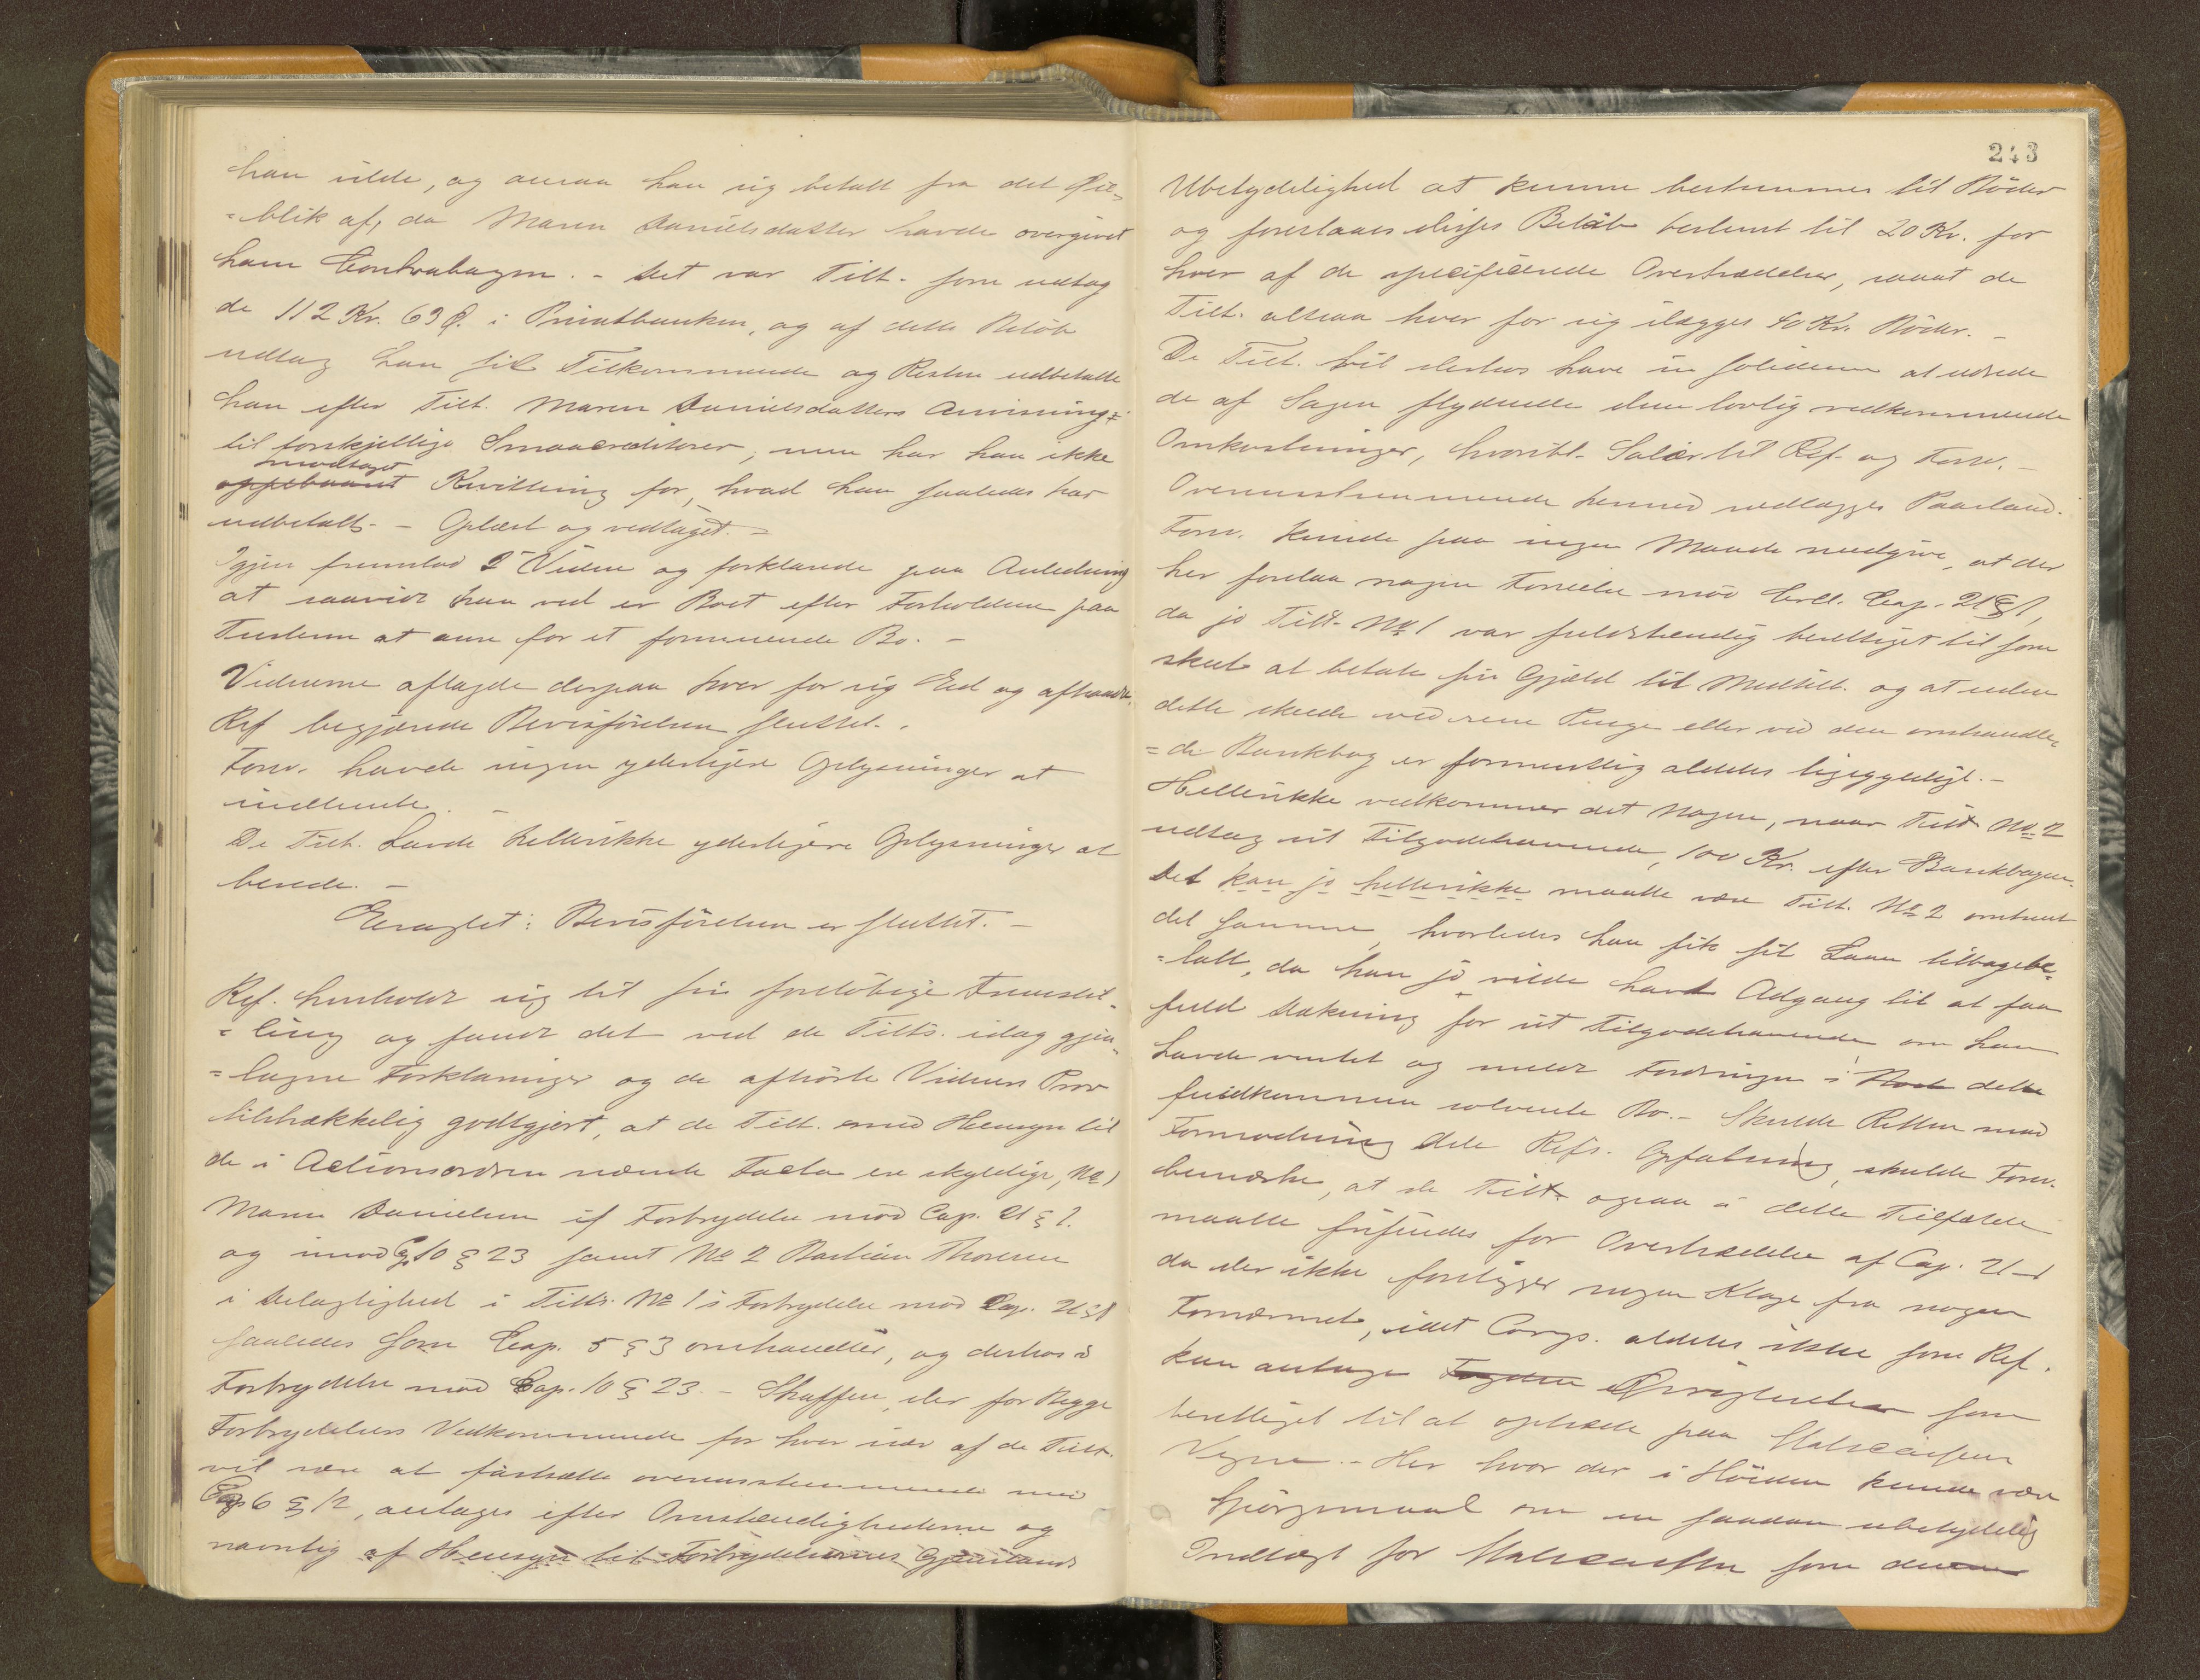 han vilde, og ansaa han sig betalt fra det Øie-
=blik af, da Maren Danielsdatter havde overgivet
ham Contrabogen. - Det var Tilt. som udtog
de 112 Kr. 69 Ø. i Privatbanken, og af dette Beløb
udtog han sit Tilkommende og Resten udbetalte
han efter Tilt. Maren Danielsdatters Anvisning
til forskjellige Smaacreditorer, men har han ikke
modtaget
oppebaaret Kvittering for, hvad han saaledes har
udbetalt. - Oplæst og vedtaget. -
Igjen fremstod 2 Vidne og forklarede paa Anledning
at saavidt han ved er Boet efter Forholdene paa
Tiden at anse for et formuende Bo. -
Vidnerne aflagde derpaa hver for sig Eed og afhandt.
Ref. begjærede Bevisførelsen sluttet. -
Forsv. havde ingen yderligere Oplysninger at
indhente. -
De Tilt. havde hellerikke yderligere Oplysninger at
berede. -
Eragtet: Bevisførelsen er sluttet. -
Ref. henholdt sig til sin foreløbige Fremstil-
=ling og fandt det ved de Tilts. idag gjen-
=tagne Forklaringer og de afhørte Vidners Prov
tilstrækkelig godtgjort, at de Tilt. med Hensyn til
de i Actionsordren nævnte Facta er skyldige, No 1
Maren Danielsen if Forbrydelse mod Cap. 21 § 1.
og imod Cap. 10 § 23 samt No 2 Bastian Thoresen
i Delagtighed i Tilts. No 1s Forbrydelse mod Cap. 21 § 1
saaledes som Cap. 5 § 3 omhandler, og derhos i
Forbrydelse mod Cap. 10 § 23. - Straffen, der for Begge
Forbrydelsers Vedkommende for hver især af de Tilt.
vil være at fastsætte overensstemmende med
Cap 6 § 12, antages efter Omstændighederne og
navnlig af Hensyn til Forbrydelsernes Gjenstands
243
Ubetydelighed at kunne bestemmes til Bøder
og foreslaaes disses Beløb bestemt til 20 Kr. for
hver af de specificerede Overtrædelser, saaat de
Tilt. altsaa hver for sig ilægges 40 Kr. Bøder. -
De Tilt. vil derhos have in solidum at udrede
de af Sagen flydende den lovlig vedkommende
Omkostninger, hvoribl. Salær til Ref. og Forsv. -
Overensstemmende hermed nedlægges Paastand.
Forsv. kunde paa ingen Maade medgive, at der
her forelaa nogen Forseelse mod Crll. Cap. 21 § 1,
da jo Tilt. No 1 var fuldstændig berettiget til som
skeet at betale sin Gjæld til Medtilt. og at enten
dette skeede ved rene Penge eller ved den omhandle-
=de Bankbog er formentlig aldeles ligegyldigt. -
Hellerikke vedkommer det Nogen, naar Tilt No 2
udtog sit Tilgodehavende, 100 Kr. efter Bankbogen.
Det kan jo hellerikke maatte være Tilt. No 2 omtrent
det samme, hvorledes han fik sit Laan tilbagebe-
=talt, da han jo vilde havt Adgang til at faa
fuld Dækning for sit Tilgodehavende, om han
havde ventet og meldt Fordringen i dette
fuldkommen solvente Bo. - Skulde Retten mod
Formodning dele Refs. Opfatning, skulde Forsv.
bemærke, at de Tilt. ogsaa i dette Tilfælde
maatte frifindes for Overtrædelse af Cap. 21-1
da der ikke foreligger nogen Klage fra nogen
Fornærmet, idet Corps. aldeles ikke som Ref.
kan antage Fogden Øvrigheden som
berettiget til at optræde paa Statscassens
Vegne. - Her hvor der i Høiden kunde være
Spørgsmaal om en saadan ubetydelig
Indtægt for Statscassen som denne